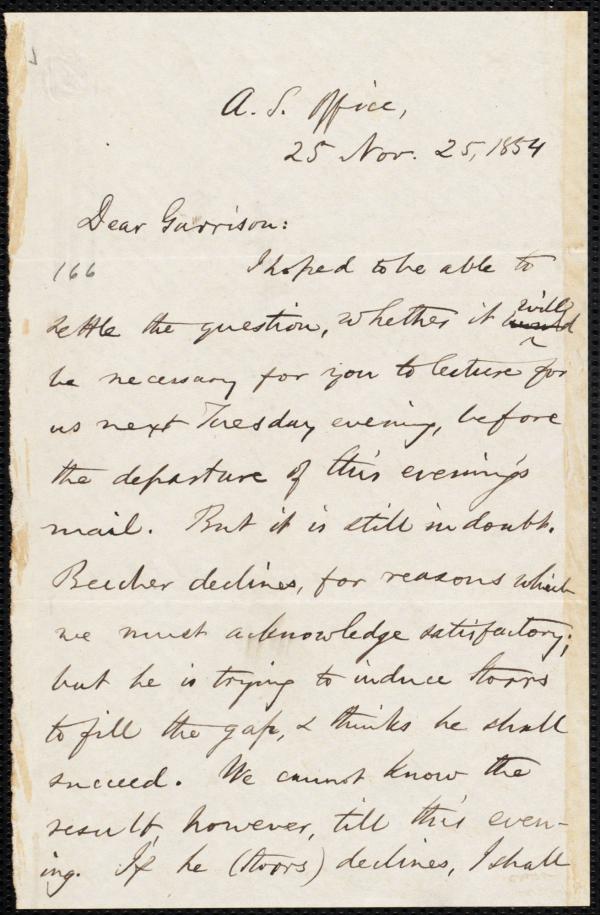 A. S. Office,
25 Nov. 25, 1854
Dear Garrison:
166
I hoped to be able to
settle the question, whether it will
be necessary for you to lecture for
us next Tuesday evening, before
the departure of this evening's
mail. But it is still in doubt.
Beecher declines, for reasons which
we must acknowledge satisfactory;
but he is trying to induce Storrs
to fill the gap, & thinks he shall
succeed. We cannot know the
result, however, till this even-
ing. If he (Storrs) declines, I shall